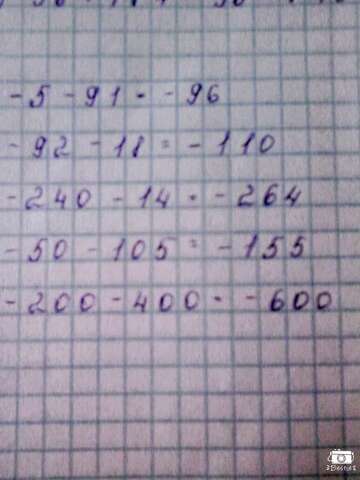 -5 -91 = -96
-92 -18 = -110
-240 -14 = -264
-50 -105 = -155
-200 -400 = -600